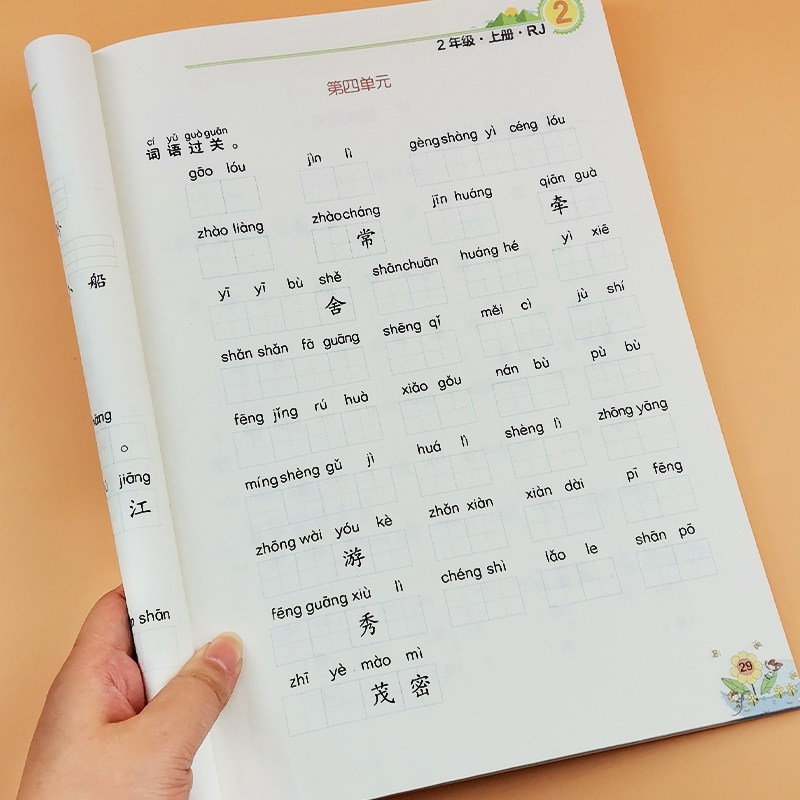 2
2年级·上册·RJ
第四单元
cí yǔ guò guān
词语过关。
gāo lóu jìn lì gèng shàng yì céng lóu
zhào liàng zhào cháng jīn huáng qiān guà
常 牵
yī yī bù shě shān chuān huáng hé yì xiē
舍
shǎn shǎn fā guāng shēng qǐ měi cì jù shí
fēng jǐng rú huà xiǎo gǒu nán bù pù bù
míng shèng gǔ jì huá lì shèng lì zhōng yāng
zhōng wài yóu kè zhǎn xiàn xiàn dài pī fēng
游
fēng guāng xiù lì chéng shì lǎo le shān pō
秀
zhī yè mào mì
茂密
29
船
。
jiāng
江
shān